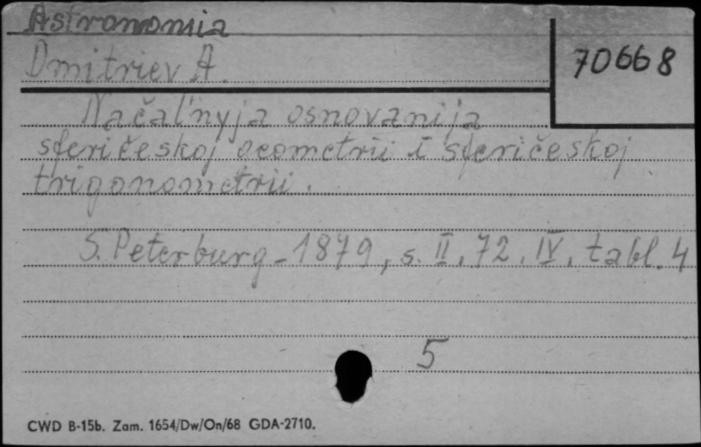 Astronomia
Dmitriev A.
70668
Načal'nyja osnovanija
sferičeskoj geometrii i sferičeskoj
trigonometrii.
S. Peterburg - 1879, s. II, 72, IV, tabl. 4
5
CWD B-15b. Zam. 1654/Dw/On/68 GDA-2710.